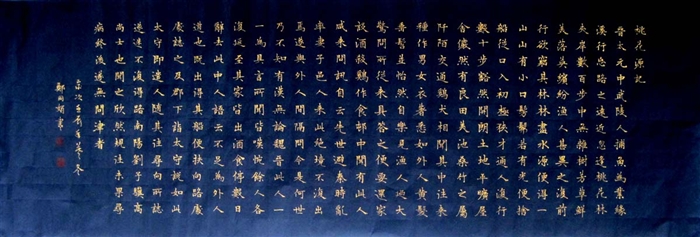 桃花源記
晉太元中武陵人捕魚為業緣
溪行忘路之遠近忽逢桃花林
夾岸數百步中無雜樹芳草鮮
美落英繽紛漁人甚異之復前
行欲窮其林林盡水源便得一
山山有小口髣髴若有光便捨
船從口入初極狹才通人復行
數十步豁然開朗土地平曠屋
舍儼然有良田美池桑竹之屬
阡陌交通雞犬相聞其中往來
種作男女衣著悉如外人黃髮
垂髫並怡然自樂見漁人乃大
驚問所從來具答之便要還家
設酒殺雞作食邨中聞有此人
咸來問訊自云先世避秦時亂
率妻子邑人來此絕境不復出
焉遂與外人間隔問今是何世
乃不知有漢無論魏晉此人一
一為具言所聞皆嘆惋餘人各
復延至其家皆出酒食停數日
辭去此中人語云不足為外人
道也既出得其船便扶向路處
處誌之及郡下詣太守說如此
太守即遣人隨其往尋向所誌
遂迷不復得路南陽劉子驥高
尚士也聞之欣然規往未果尋
病終後遂無問津者